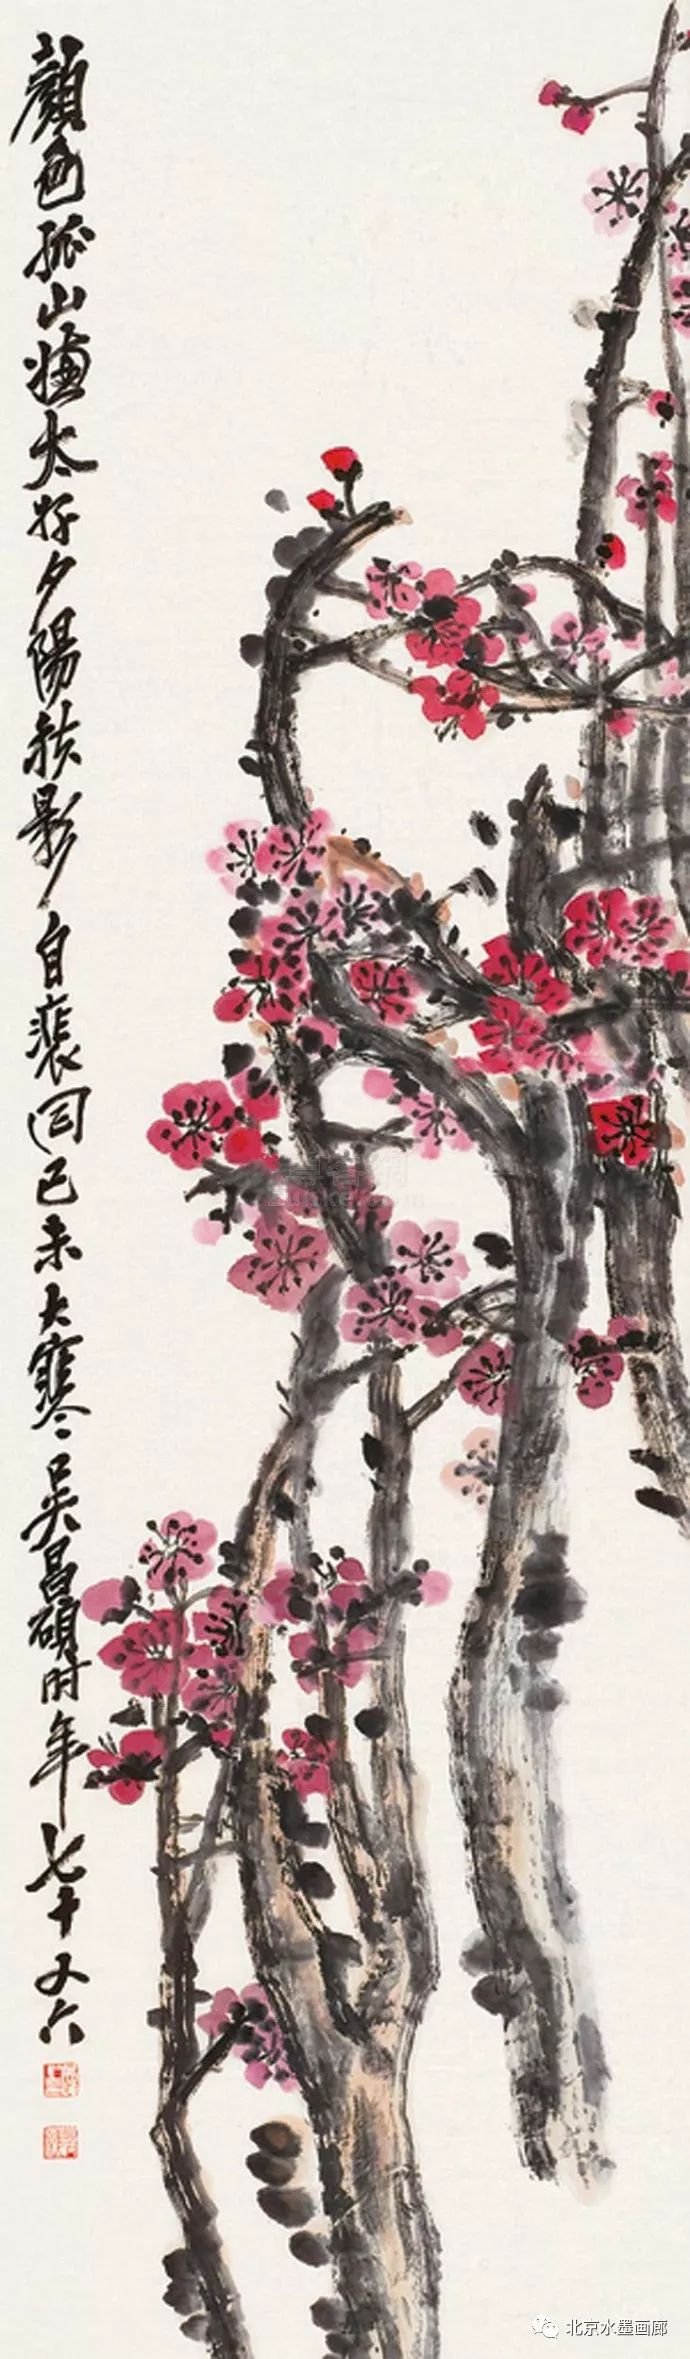 顏色孤山嫌太好夕陽扶影自裴回己未大寒吳昌碩时年七十又六
北京水墨画廊